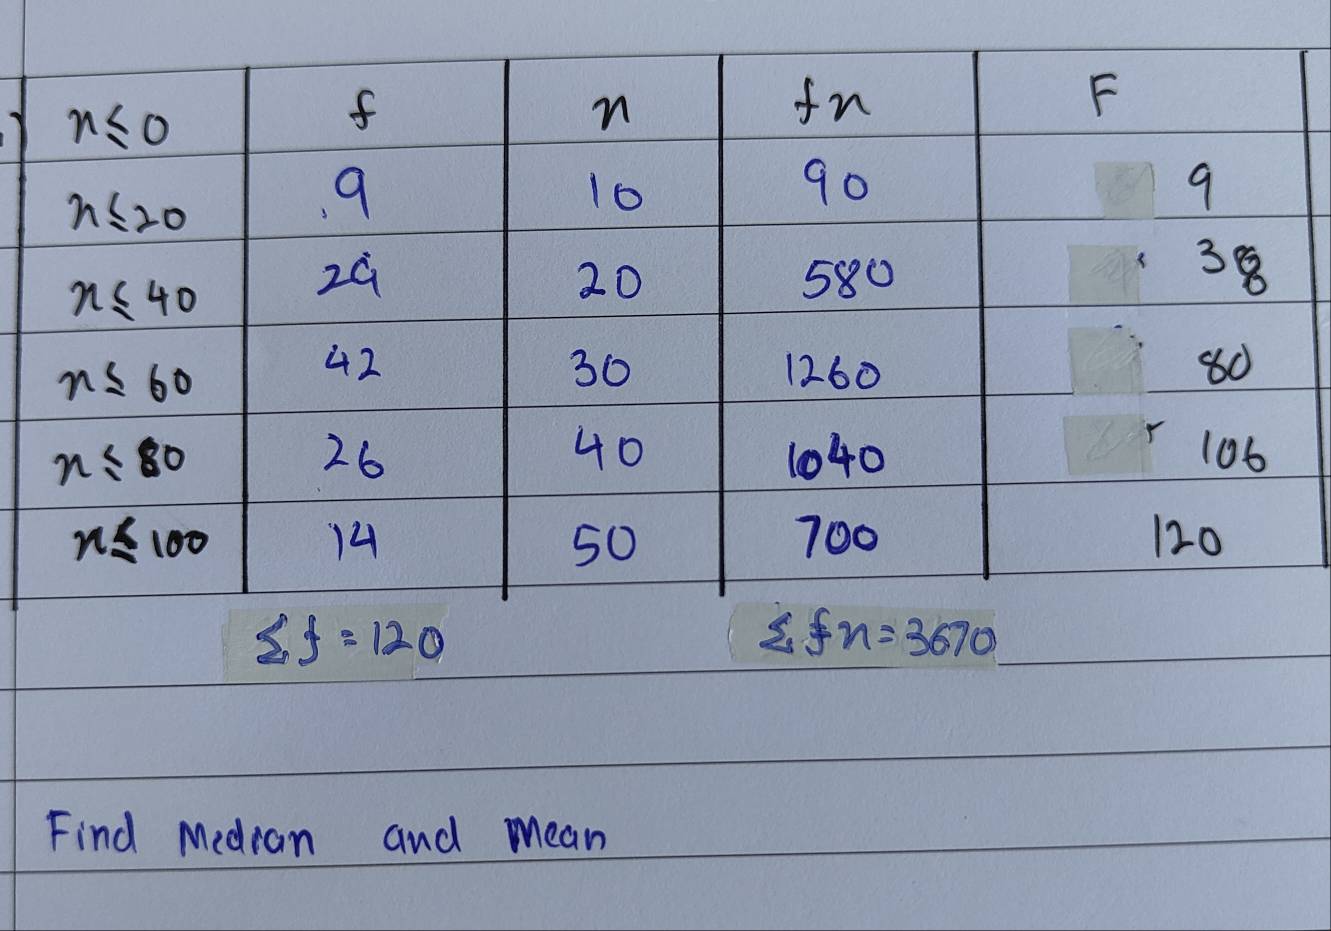 x≤0 f x fx F
x≤20 9 10 90 9
x≤40 29 20 580 38
x≤60 42 30 1260 80
x≤80 26 40 1040 106
x≤100 14 50 700 120
Σf=120 Σfx=3670
Find Median and Mean